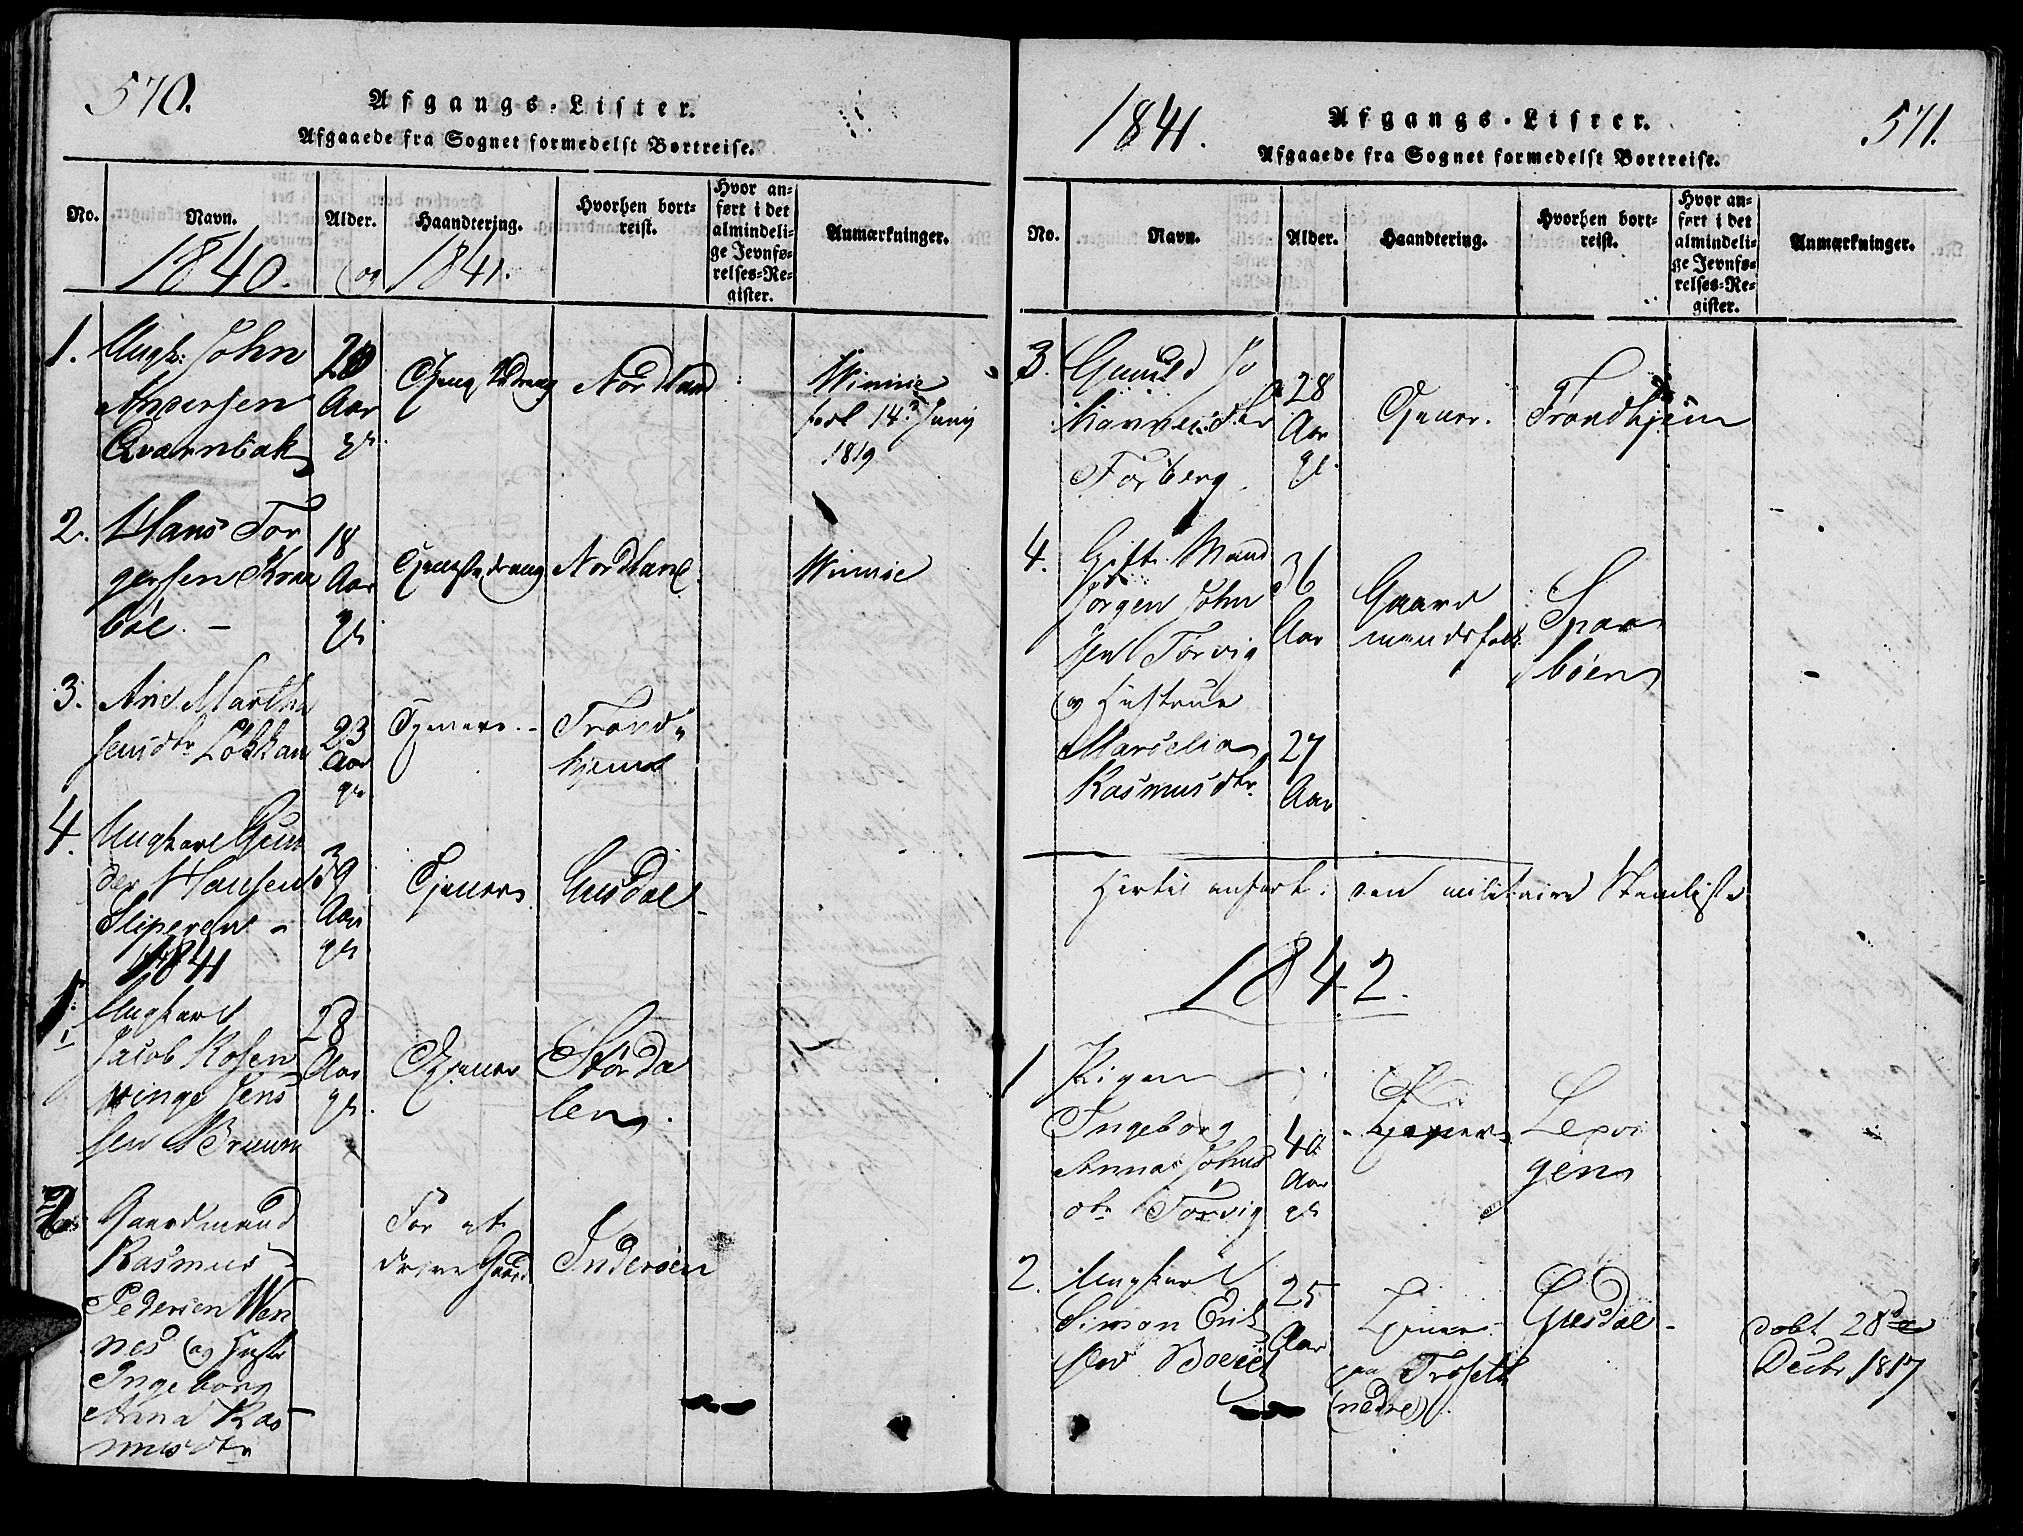 570.
Afgangs-Lister.
Afgaaede fra Sognet formedelst Bortreise.
No.
Navn.
Alder.
Haandtering.
Hvorhen bort-
reist.
Hvor an-
ført i det
almindeli-
ge Jevnfø-
relses-Re-
gister.
Anmærkninger.
1840. og 1841.
1.
Ungk: John
Andersen
Qvarnbak
20
Aar
gl.
Nordland
Winnie
14de Juny
1819
2.
Hans Tor
gersen Kraa
böe. -
18
Aar
gl.
Tjenestedreng
Nordland
Winnie
3.
Ane Martha
Jensdtr Løkkan
23
Aar
gl.
Tjenere.
Trond-
hjem
4.
Ungkarl Gun
der Hansen
Sliperen -
39
Aar
gl.
Tjener
Guldal
1841
1
Ungkarl
Jacob Rosen
vinge Jens
sen Bruun
28
Aar
gl.
Tjener
Størda
len.
2
Gaardmand
Rasmus
Pedersen Wen
nes og Hustr
Ingeborg
Anna Ras-
musdtr
For at
drive Gaard
Inderøen
1841.
Afgangs-Lister.
571.
Afgaaede fra Sognet formedelst Bortreise.
No.
Navn.
Alder.
Haandtering.
Hvorhen bort-
reist.
Hvor an-
ført i det
almindeli-
ge Jevnfø-
relses-Re-
gister.
Anmærkninger.
3.
Gunild Jo
hannesdtr
Forberg
28
Aar
gl.
Tjener.
Trondhjem
4.
Gift Mand
Jørgen John
sen Tørvig
og Hustrue
Marselia
Rasmusdtr.
36
Aar
27
Aar
Gaard
mandsfolk
Spar
böen
Hertil anført i den militaire Stamliste
1842.
1
Pigen
Ingeborg
Anna Johns
dtr Tørvig
40
Aar
gl.
Tjener
Lexvi
gen
2.
Ungkarl
Simon Erik
sen
25
Aar
Tjener
paa Trøseth
(nedre)
Guldal
døbt 28de
Decbr 1817